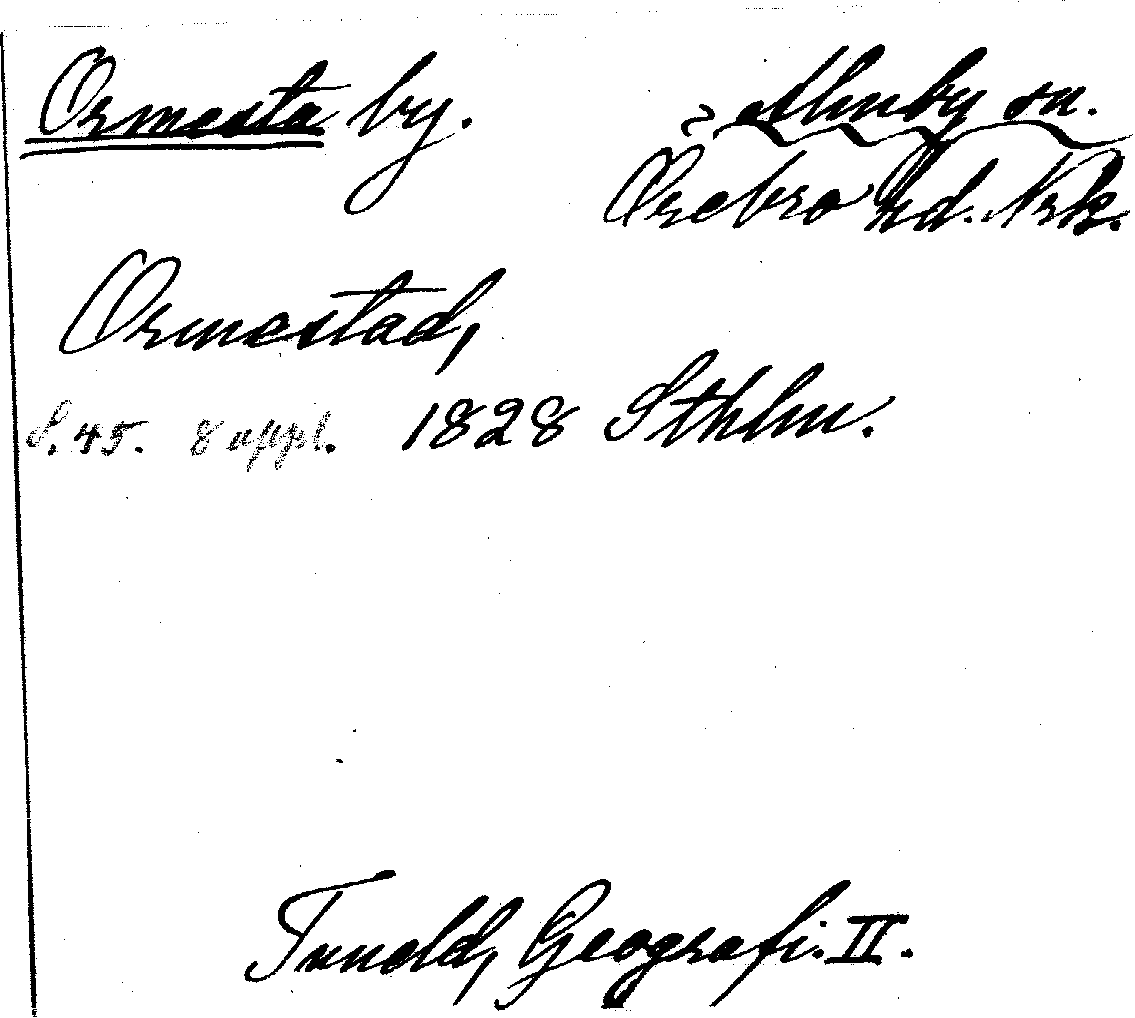 Ormesta by.
Almby sn.
Örebro hd. Nrk.
Ormestad,
S. 45. 8 uppl. 1828 Sthlm.
Tuneld, Geografi. II.